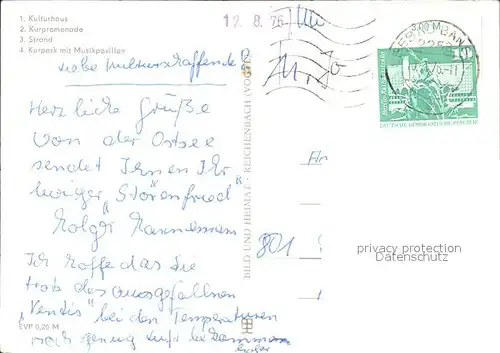 1. Kulturhaus
2. Kurpromenade
3. Strand
4. Kurpark mit Musikpavillon
12. 8. 76
Liebe
Herzliche Grüße
von der Ostsee
sendet Ihnen Ihr
"Störenfried"
Holger
Ich hoffe das Sie
trotz des ausgefallnen
"Ventis" bei den Temperaturen
noch genug Luft bekommen
EVP 0,20 M
BILD UND HEIMAT · REICHENBACH (VOGTL)
DEUTSCHE DEMOKRATISCHE REPUBLIK
An
801
privacy protection
Datenschutz